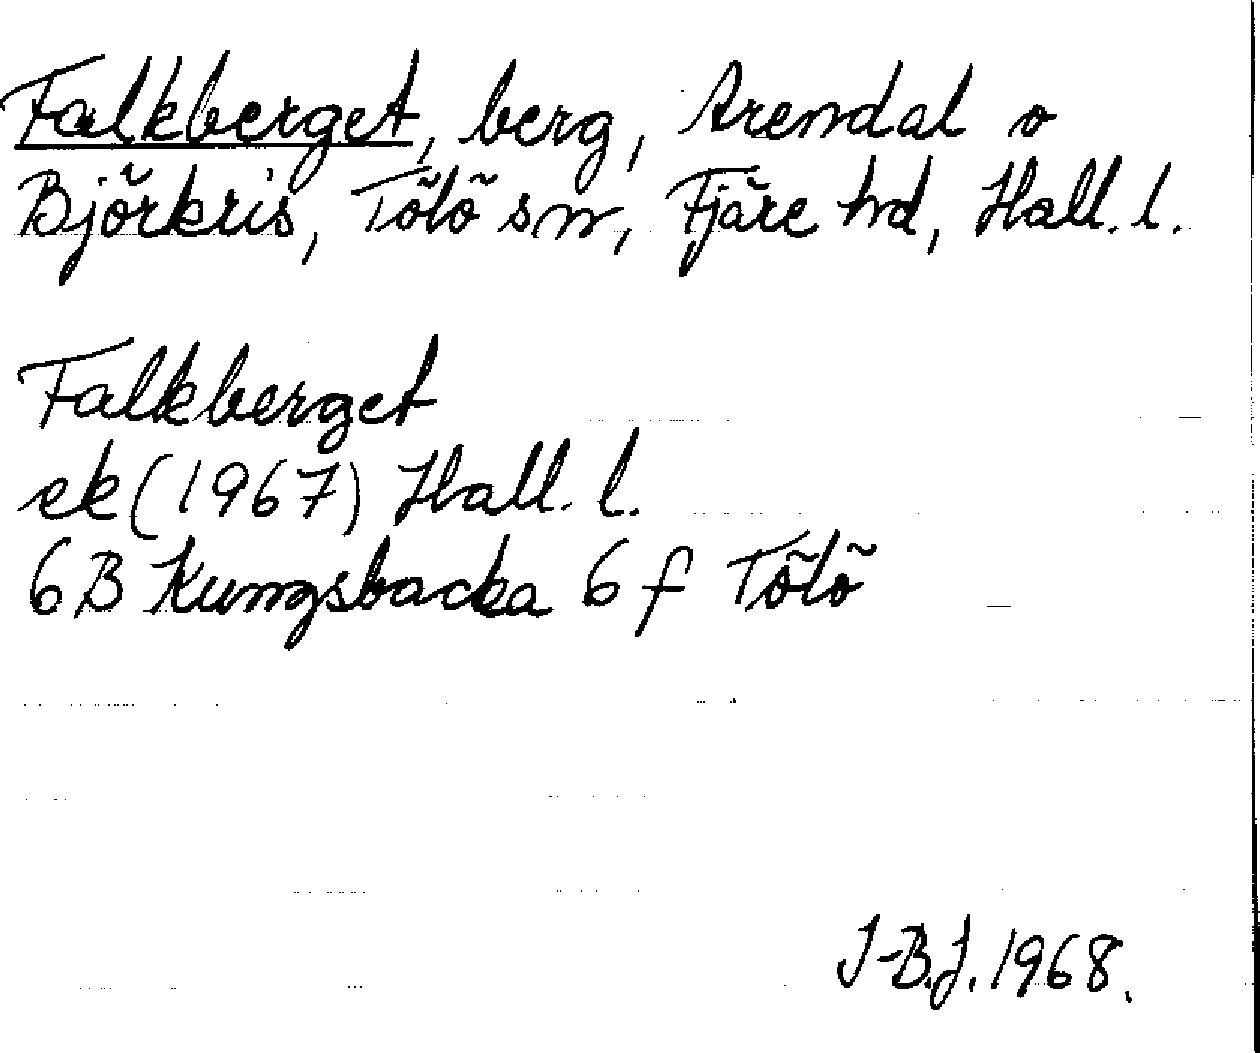 Falkberget, berg, Arendal o
Björkris, Tölö sn, Fjäre hd, Hall. l.
Falkberget
ek (1967) Hall. l.
6B Kungsbacka 6 f Tölö
I-B.J. 1968.